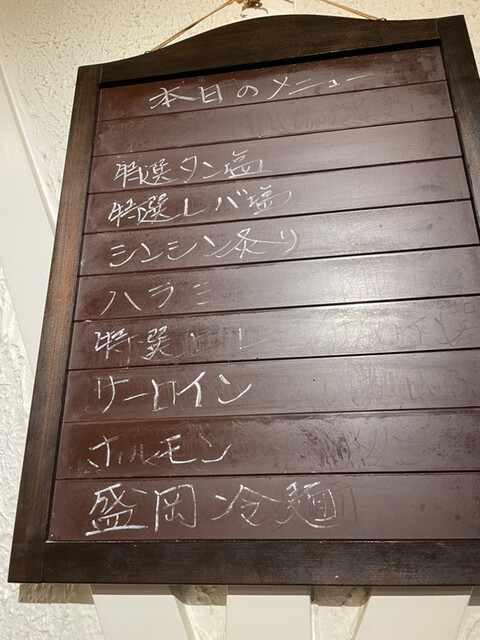 本日のメニュー
特選タン塩
特選レバ塩
シンシン炙り
ハラミ
特選
サーロイン
ホルモン
盛岡冷麺